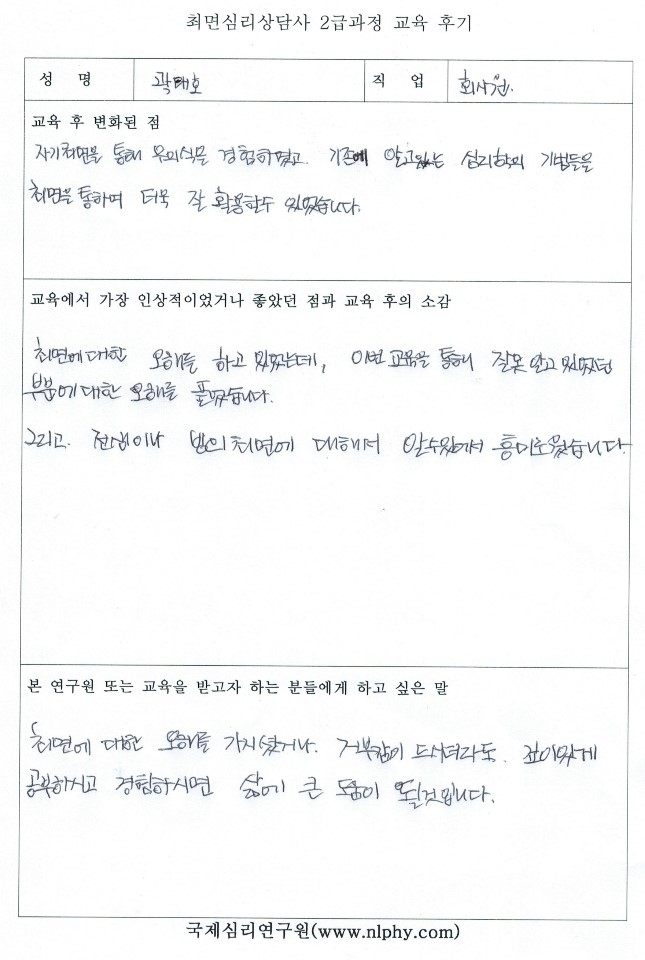 최면심리상담사 2급과정 교육 후기
성 명 곽태호 직 업 회사원.
교육 후 변화된 점
자기최면을 통해 무의식을 경험하였고. 기존에 알고있는 심리학의 기법들을
최면을 통하여 더욱 잘 활용할수 있었습니다.
교육에서 가장 인상적이었거나 좋았던 점과 교육 후의 소감
최면에 대한 오해를 하고 있었는데, 이번 교육을 통해 잘못 알고 있었던
부분에 대한 오해를 풀었습니다.
그리고. 전생이나 빙의최면에 대해서 알수있어서 흥미로웠습니다.
본 연구원 또는 교육을 받고자 하는 분들에게 하고 싶은 말
최면에 대한 오해를 가지셨거나. 거부감이 드시더라도. 깊이있게
공부하시고 경험하시면 삶에 큰 도움이 될것입니다.
국제심리연구원(www.nlphy.com)